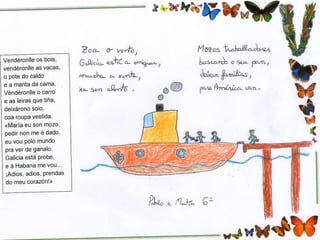 Vendéronlle os bois,
vendéronlle as vacas,
o pote do caldo
e a manta da cama.
Véndéronlle o carro
e as leiras que tiña,
deixárono soio,
coa roupa vestida.
«María eu son mozo,
pedir non me é dado,
eu vou polo mundo
pra ver de ganalo.
Galicia está probe,
e á Habana me vou...
¡Adios, adios, prendas
do meu corazón!»
Zoa o vento,
Galicia está a emigrar,
marcha a xente,
xa sen alento.
Mozos traballadores
buscando o seu pan,
deixan familias,
para América van.
Pablo e Martín 6º